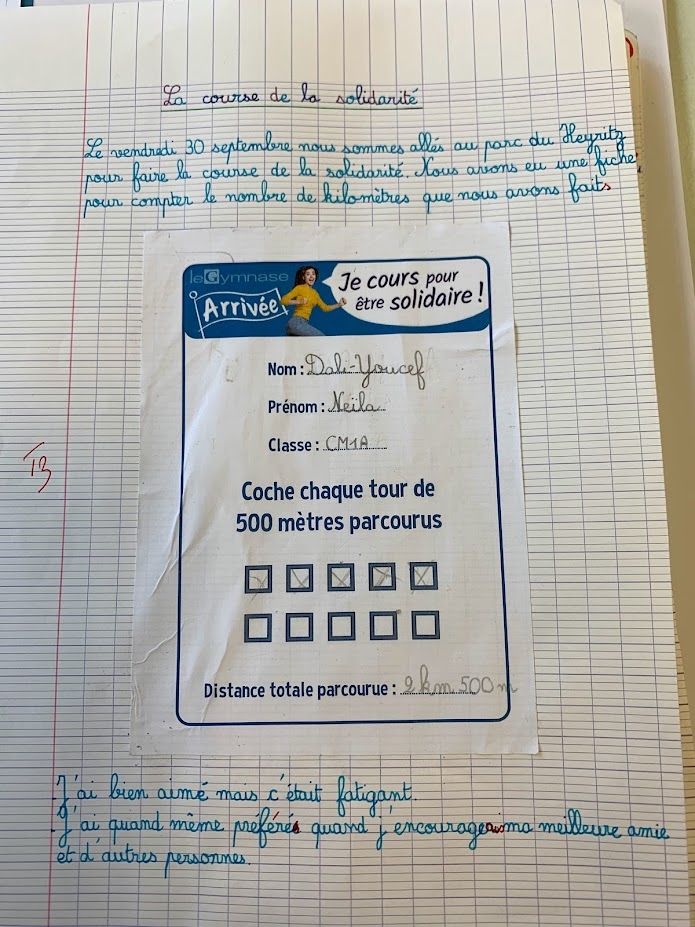 La course de la solidarité
Le vendredi 30 septembre nous sommes allés au parc du Heyritz
pour faire la course de la solidarité. Nous avons eu une fiche
pour compter le nombre de kilomètres que nous avons faits
leGymnase
Arrivée
Je cours pour
être solidaire !
Nom : Dali-Youcef
Prénom : Neïla
Classe : CM1A
TB
Coche chaque tour de
500 mètres parcourus
Distance totale parcourue : 2 km 500 m
J'ai bien aimé mais c'était fatigant.
J'ai quand même préféré quand j'encourageais ma meilleure amie
et d'autres personnes.